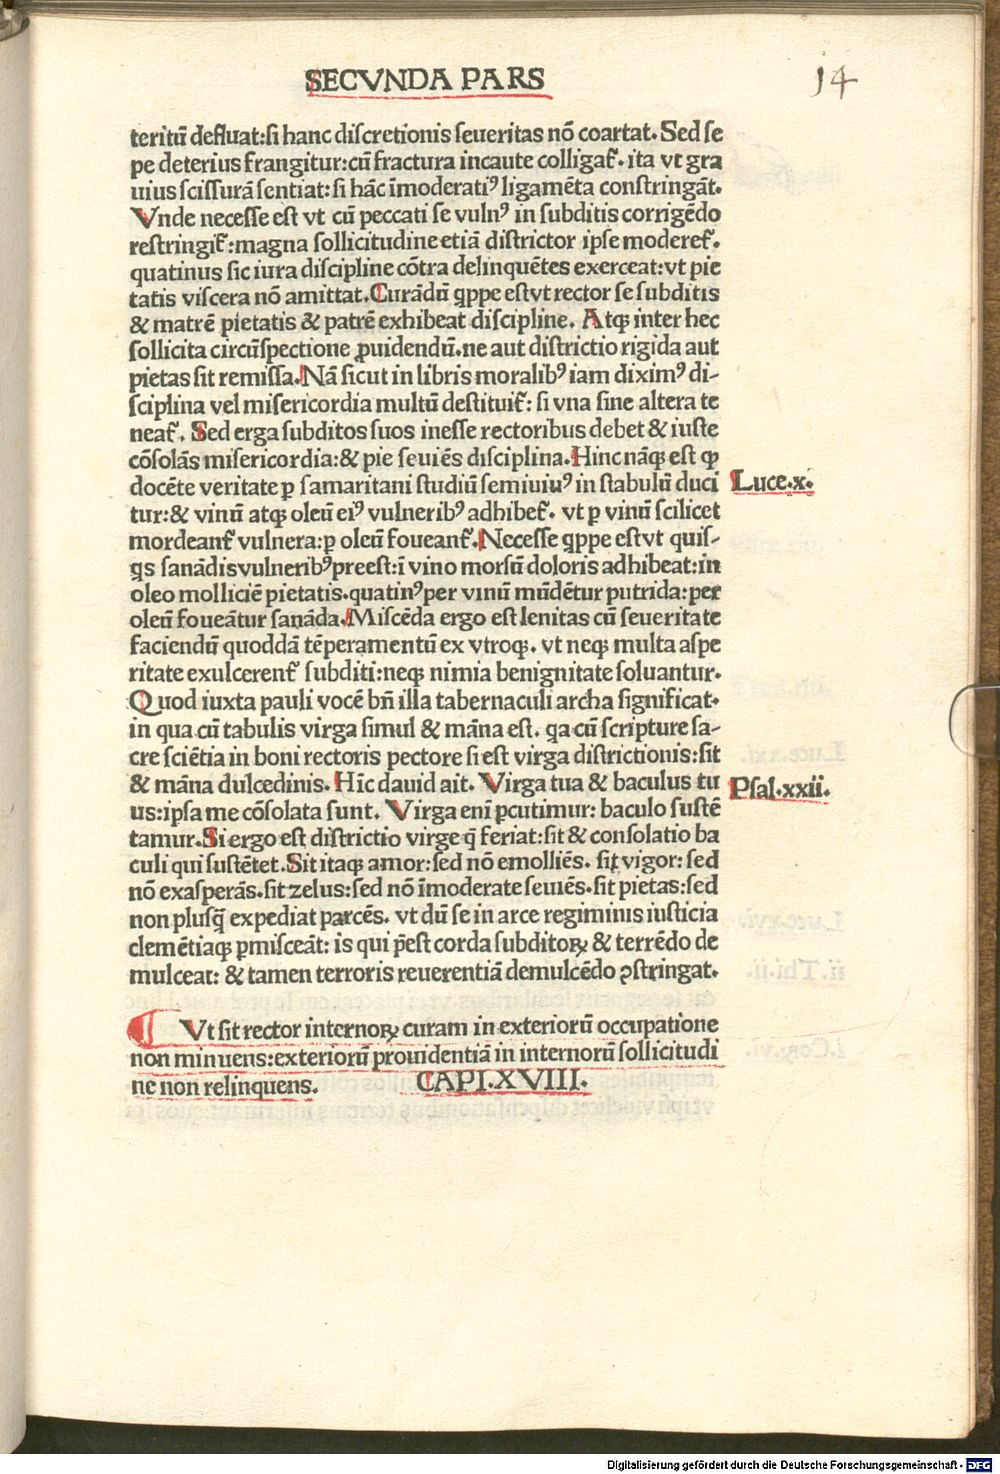 SECVNDA PARS
14
teritū defluat:ſi hanc diſcretionis ſeueritas nō coartat. Sed ſe
pe deterius frangitur:cū fractura incaute colligat᷑. ita vt gra
uius ſciſſurā ſentiat:ſi hāc īmoderatiꝰ ligamēta conſtringāt.
Vnde neceſſe eſt vt cū peccati ſe vulnꝰ in ſubditis corrigēdo
reſtringit᷑:magna ſollicitudine etiā diſtrictor ipſe moderet᷑.
quatinus ſic iura diſcipline cōtra delinquētes exerceat:vt pie
tatis viſcera nō amittat. Curādū q̇ppe eſt vt rector ſe ſubditis
& matrē pietatis & patrē exhibeat diſcipline. Atqꝫ inter hec
ſollicita circūſpectione ꝓuidendū.ne aut diſtrictio rigida aut
pietas ſit remiſſa. Nā ſicut in libris moralibꝰ iam diximꝰ di-
ſciplina vel miſericordia multū deſtituit᷑: ſi vna ſine altera te
neat᷑. Sed erga ſubditos ſuos ineſſe rectoribus debet & iuſte
cōſolās miſericordia:& pie ſeuiēs diſciplina. Hinc nāqꝫ eſt ꝙ
docēte veritate ꝑ ſamaritani ſtudiū ſemiuiuꝰ in ſtabulū duci
tur:& vinū atqꝫ oleū eiꝰ vulneribꝰ adhibet᷑. vt ꝑ vinū ſcilicet
mordeant᷑ vulnera:ꝑ oleū foueant᷑. Neceſſe q̇ppe eſt vt quiſ-
q̇s ſanādis vulneribꝰ preeſt:ī vino morſū doloris adhibeat:in
oleo molliciē pietatis.quatinꝰ per vinū mūdētur putrida:per
oleū foueātur ſanāda. Miſcēda ergo eſt lenitas cū ſeueritate
faciendū quoddā tēperamentū ex vtroqꝫ. vt neqꝫ multa aſpe
ritate exulcerent᷑ ſubditi:neqꝫ nimia benignitate ſoluantur.
Quod iuxta pauli vocē bn̄ illa tabernaculi archa ſignificat.
in qua cū tabulis virga ſimul & māna eſt. qa cū ſcripture ſa-
cre ſciētia in boni rectoris pectore ſi eſt virga diſtrictionis:ſit
& māna dulcedinis. Hīc dauid ait. Virga tua & baculus tu
us:ipſa me cōſolata ſunt. Virga eni ꝑcutimur: baculo ſuſtē
tamur. Si ergo eſt diſtrictio virge q̄ feriat:ſit & conſolatio ba
culi qui ſuſtētet. Sit itaqꝫ amor:ſed nō emolliēs. ſit vigor: ſed
nō exaſperās.ſit zelus:ſed nō īmoderate ſeuiēs.ſit pietas:ſed
non pluſq̄ expediat parcēs. vt dū ſe in arce regiminis iuſticia
clemētiaqꝫ ꝑmiſceāt: is qui p̄eſt corda ſubditoꝝ & terrēdo de
mulceat: & tamen terroris reuerentiā demulcēdo ꝯſtringat.
Luce.x.
Pſal.xxii.
Vt ſit rector internoꝝ curam in exteriorū occupatione
non minuens:exteriorū prouidentiā in internorū ſollicitudi
ne non relinquens. CAPI.XVIII.
Digitalisierung gefördert durch die Deutsche Forschungsgemeinschaft - DFG